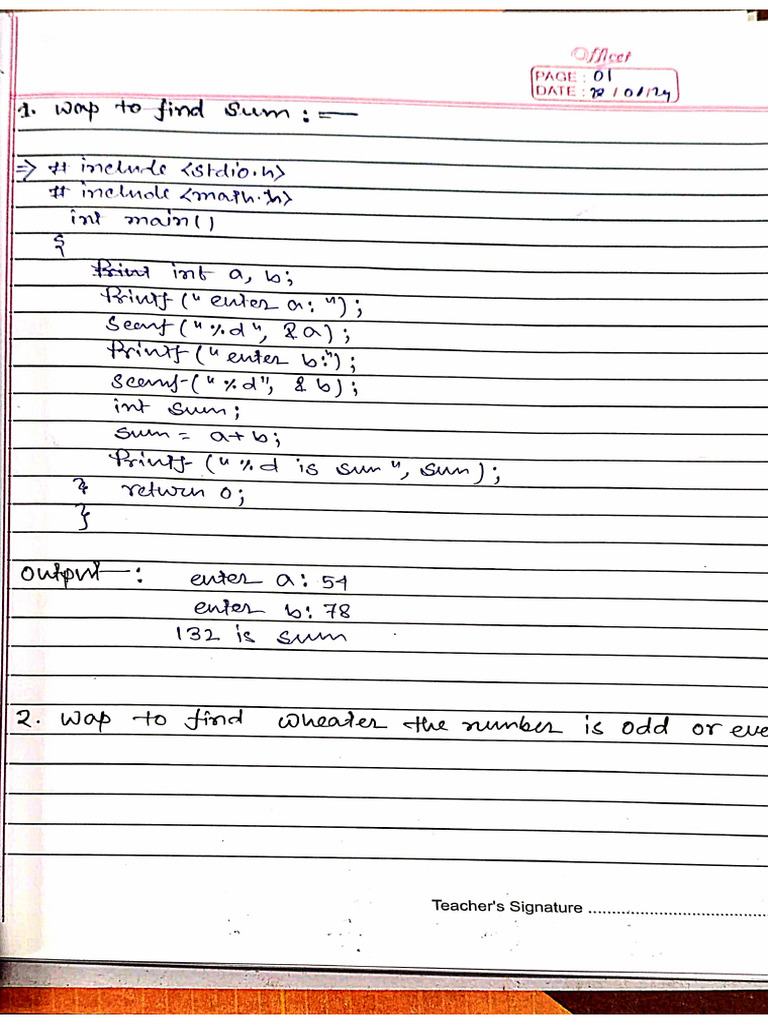 Officet
PAGE : 01
DATE : 22/01/24
1. Wap to find sum : =
=> # include <stdio.h>
# include <math.h>
int main()
{
int a, b;
Printf (" enter a: ");
Scanf (" %d", & a);
Printf (" enter b:");
Scanf (" %d", & b);
int sum;
sum = a+b;
Printf (" %d is sum", sum);
return 0;
}
Output :
enter a: 54
enter b: 78
132 is sum
2. Wap to find wheater the number is odd or eve
Teacher's Signature ........................................